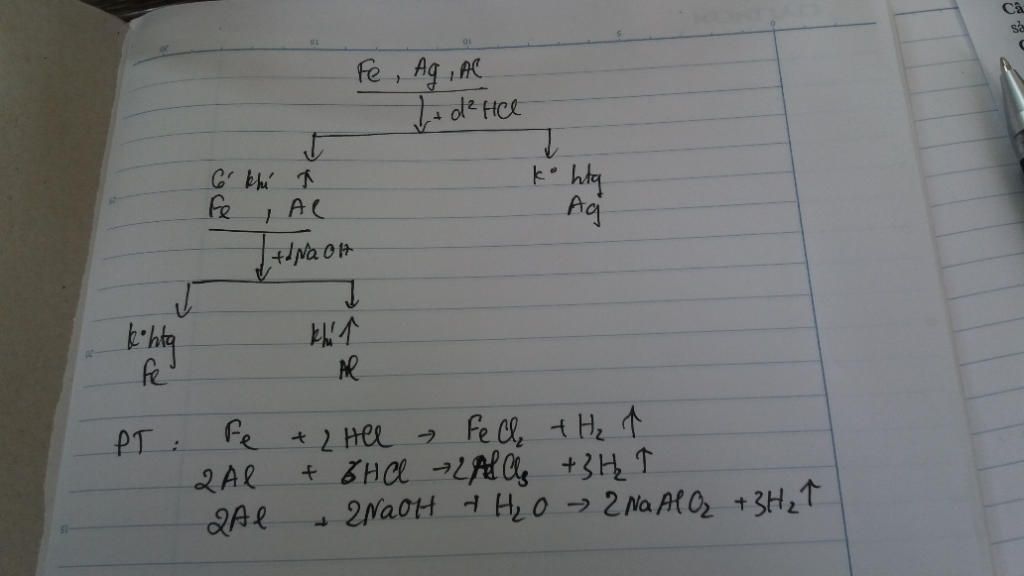 Fe , Ag , Al
+ d² HCl
Có khí ↑
k° htg
Fe , Al
Ag
+ d² NaOH
k° htg
khí ↑
Fe
Al
PT : Fe + 2 HCl → FeCl₂ + H₂ ↑
2Al + 6HCl → 2AlCl₃ + 3H₂ ↑
2Al + 2NaOH + H₂O → 2NaAlO₂ + 3H₂ ↑